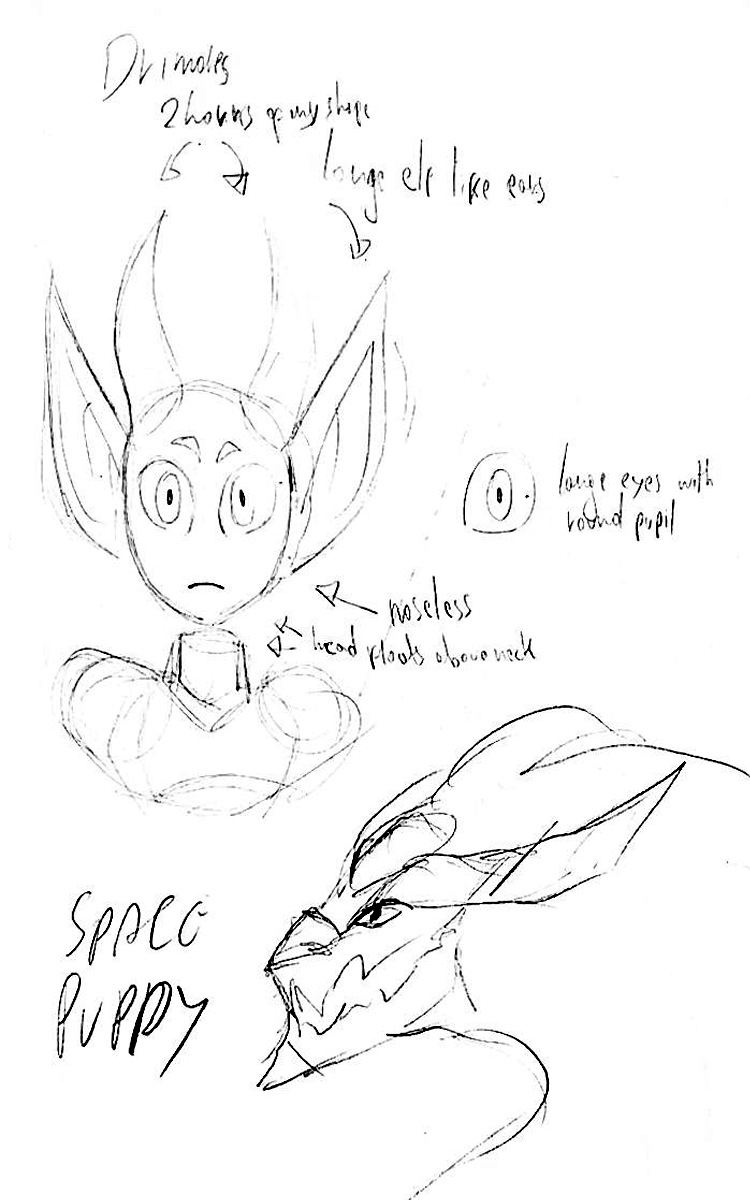 Drimoles
2 horns of any shape
large elf like ears
large eyes with
round pupil
noseless
head floats above neck
SPACE
PUPPY